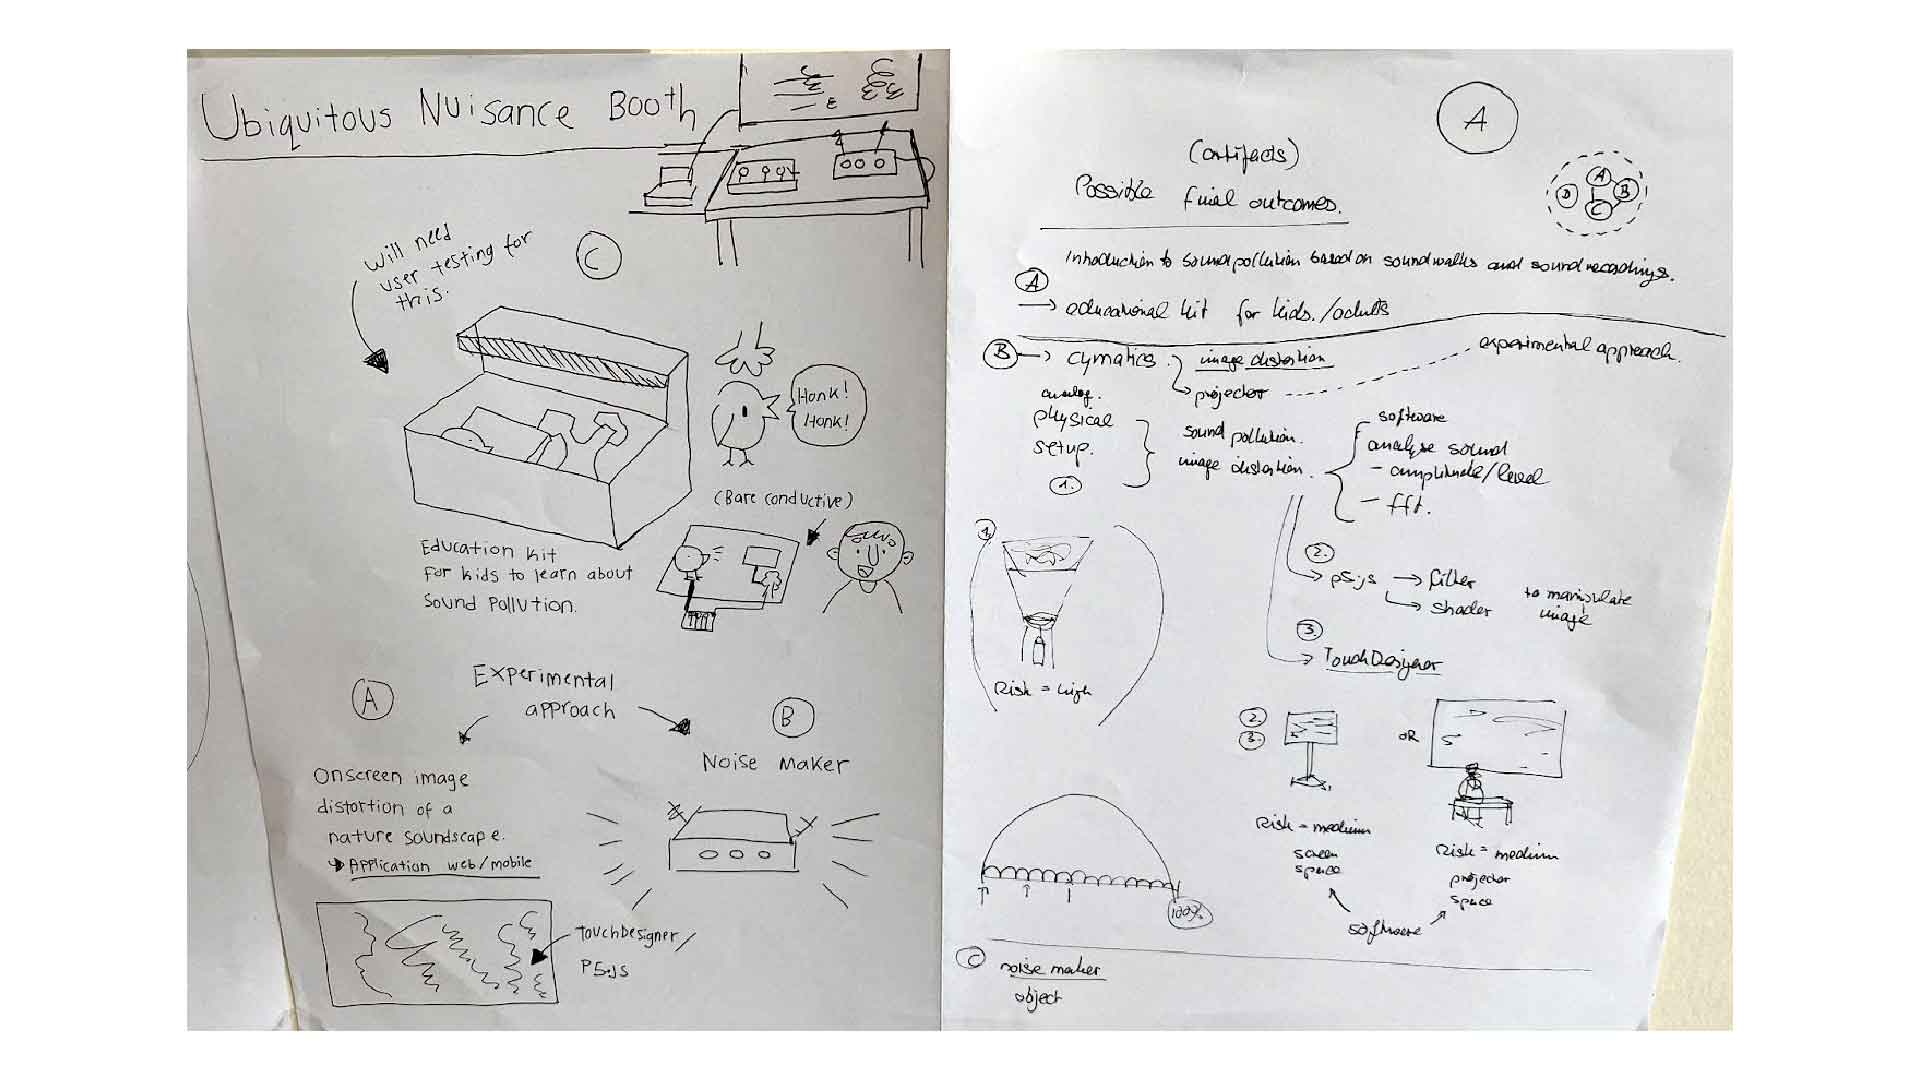 Ubiquitous Nuisance Booth
will need
user testing for
this.
C
Honk!
Honk!
(Bare conductive)
Education kit
for kids to learn about
Sound Pollution.
Experimental
approach
A
B
Onscreen image
distortion of a
nature soundscape.
Application web/mobile
Noise Maker
TouchDesigner/
P5.js
A
(artifacts)
Possible final outcomes.
A
B
C
D
Introduction to sound pollution based on soundwalks and sound recordings.
A
→ educational kit for kids./adults
B → cymatics. image distortion
projector
experimental approach.
analog.
physical
setup.
1.
sound pollution.
image distortion.
software
analyze sound
- amplitude/level
- fft.
2.
p5.js → filter
shader
to manipulate
image
3.
TouchDesigner
1.
Risk = high
2.
3.
OR
Risk = medium
screen
space
Risk = medium
projector
space
software
100%
C noise maker
object